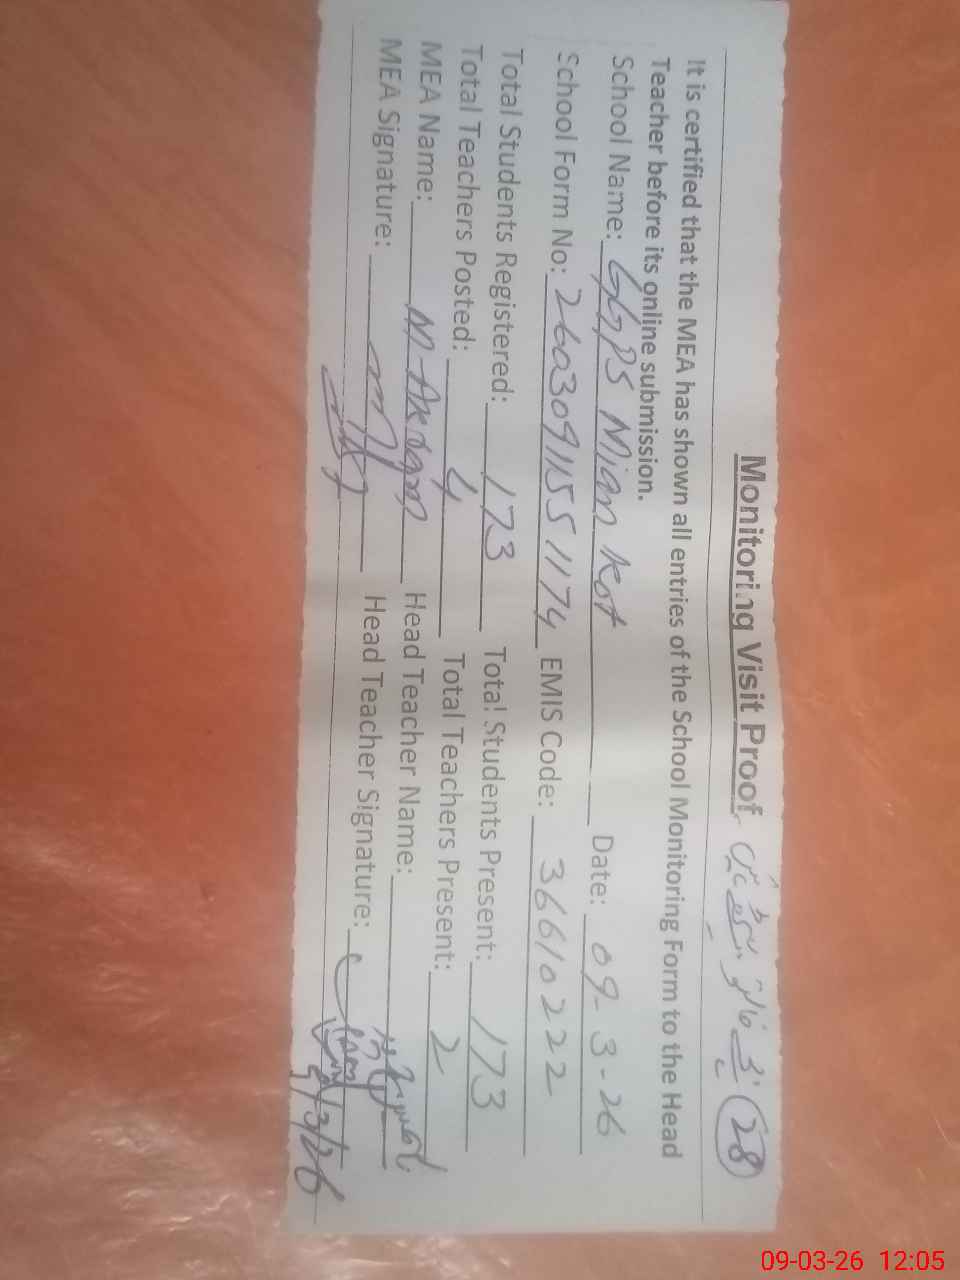 Monitoring Visit Proof 28
It is certified that the MEA has shown all entries of the School Monitoring Form to the Head
Teacher before its online submission.
School Name: GGPS Mian Kot Date: 09-3-26
School Form No: 260309115511174 EMIS Code: 36610222
Total Students Registered: 173 Total Students Present: 173
Total Teachers Posted: 4 Total Teachers Present: 2
MEA Name: Head Teacher Name:
MEA Signature: Head Teacher Signature:
9/3/26
09-03-26 12:05